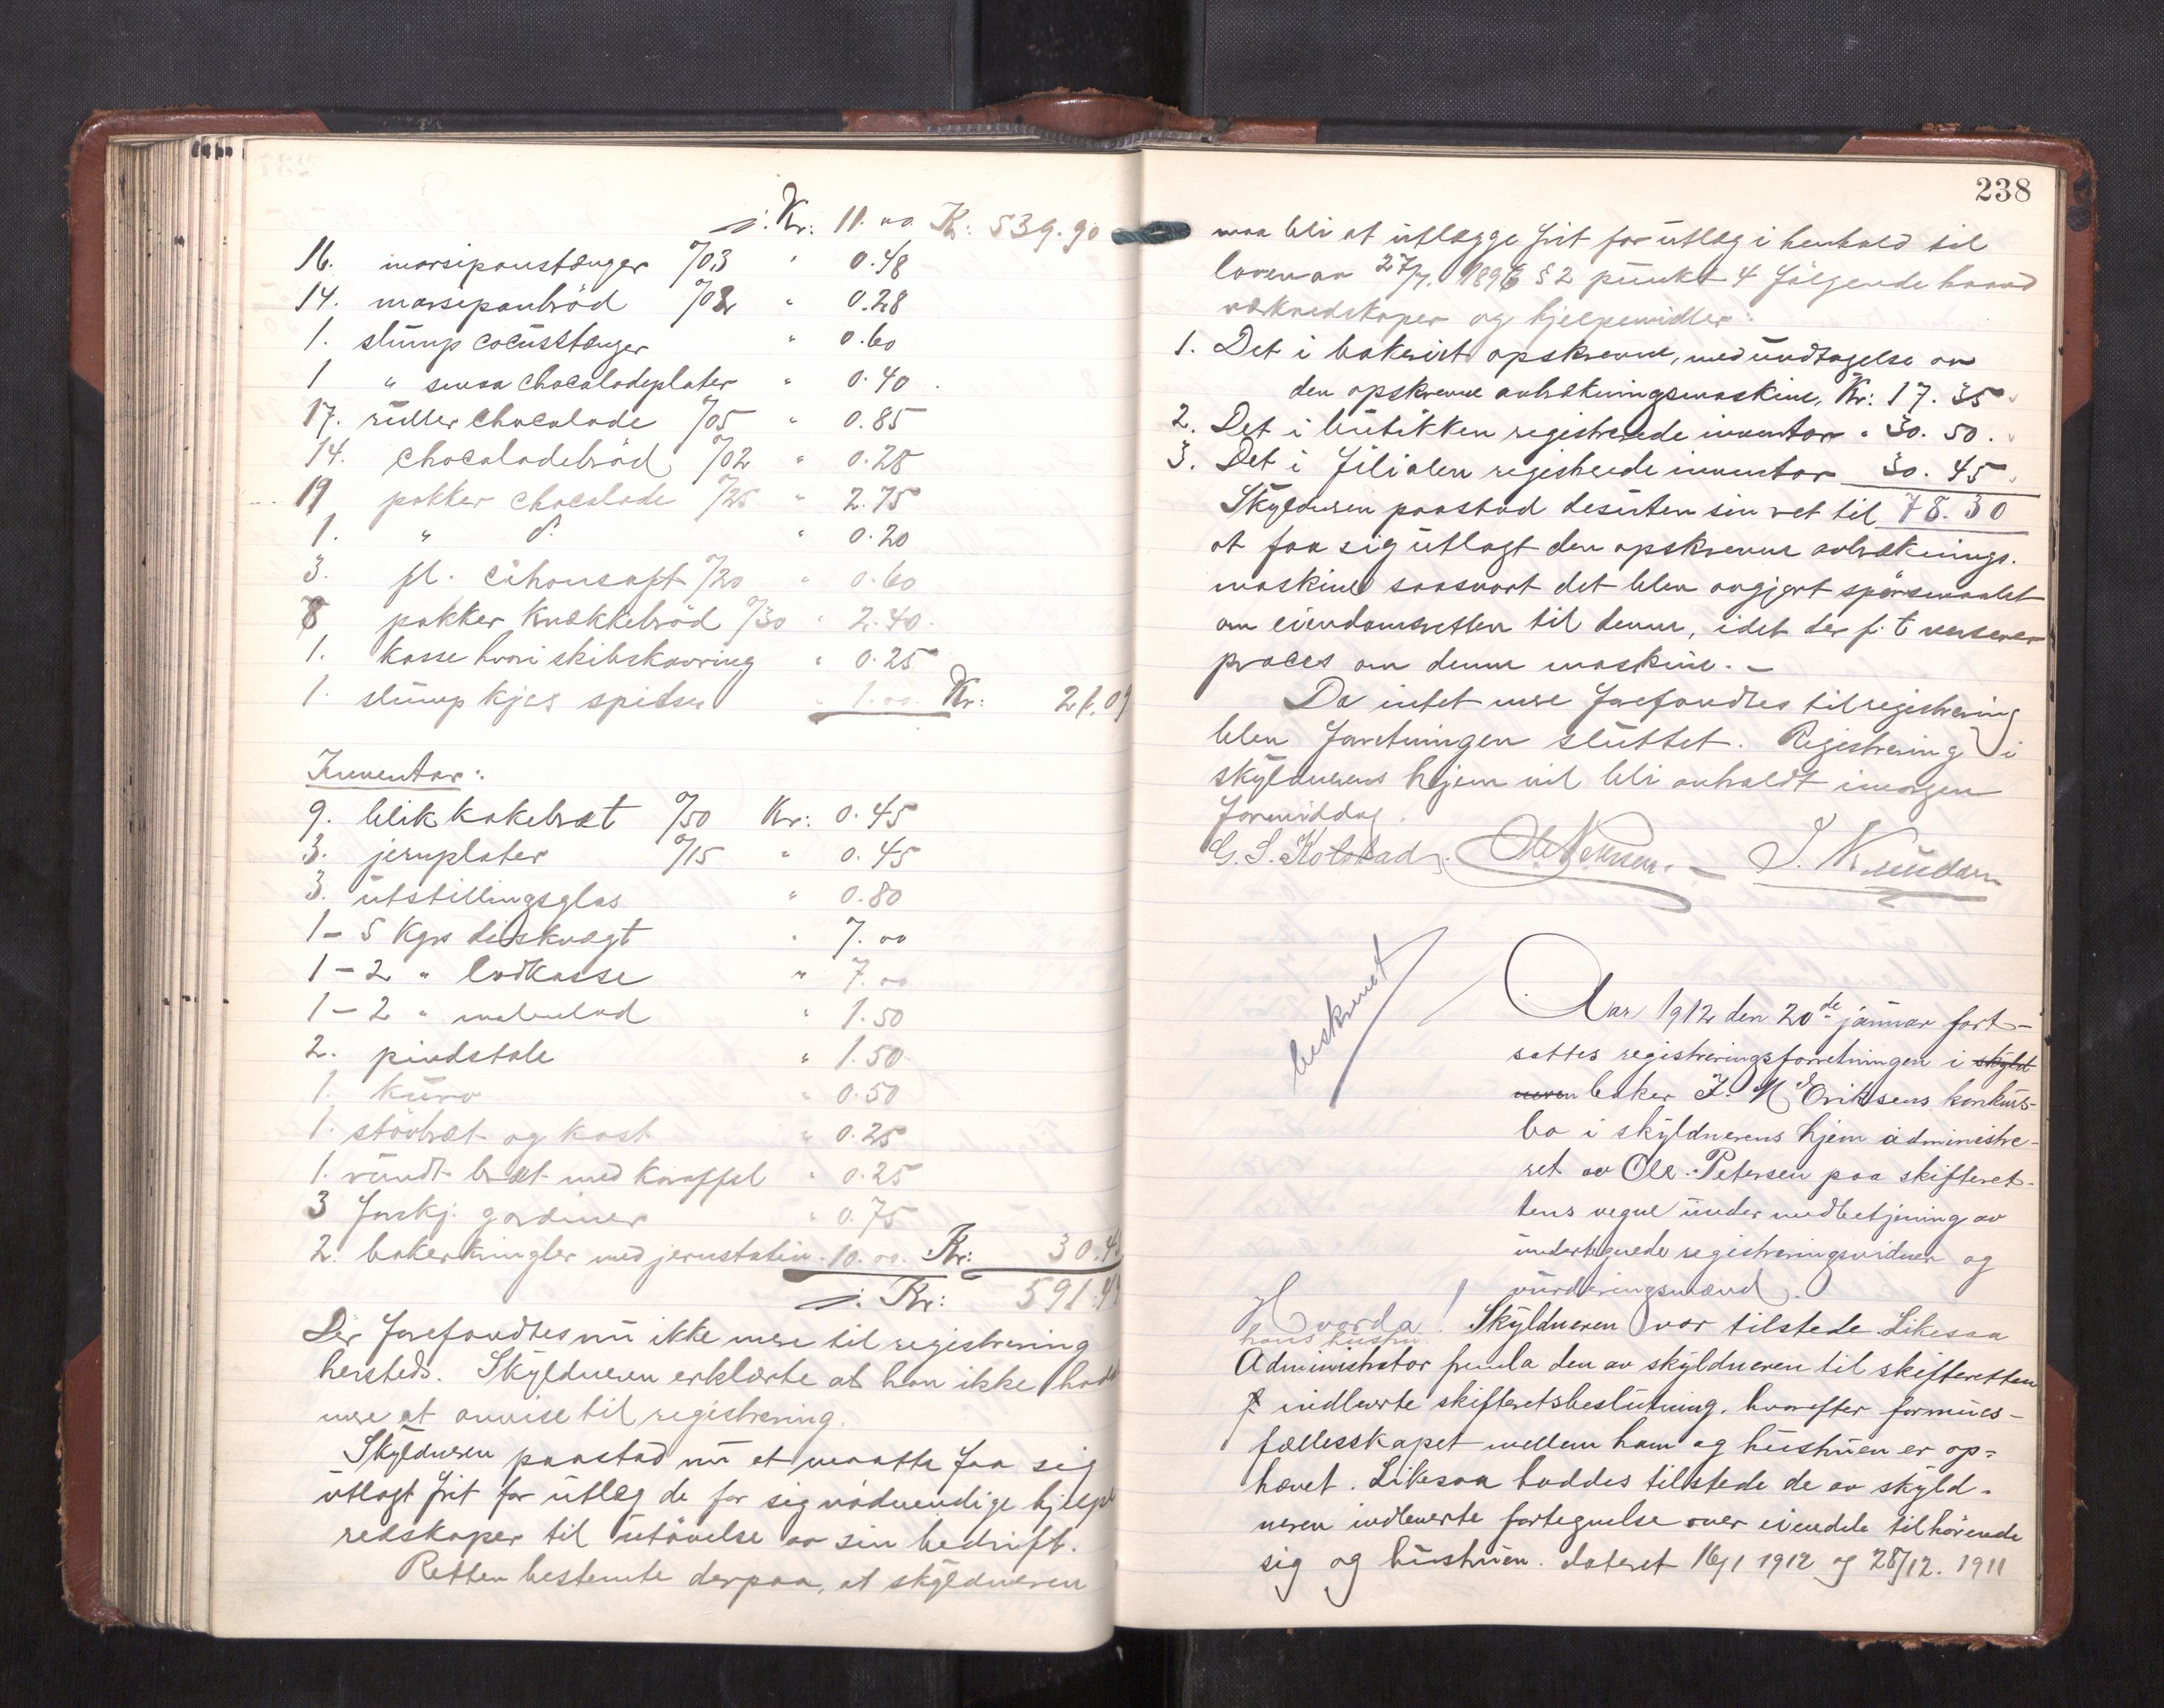 j. Kr: 11.00 Kr: 539.90
16. marsipanstænger %03 " 0.48
14. marsipanbröd %02 " 0.28
1. slump cocusstænger " 0.60
1 " smaa chocoladeplater " 0.40
17. ruller chocolade %05 " 0.85
14. chocoladebröd %02 " 0.28
19 pakker chocolade %25 " 2.75
1. " d. " 0.20
3. fl. citronsaft %20 " 0.60
8 pakker knækkebröd %30 " 2.40.
1. kasse hvori skibskavring " 0.25
1. slump kjæs spidser " 1.00 Kr: 21.09
Inventar:
9. blik kakebræt %50 Kr: 0.45
3. jernplater %15 " 0.45
3. utstillingsglas " 0.80
1 - 5 Kgrs diskvægt " 7.00
1 - 2 " lodkasse " 7.00
1 - 2 " " 1.50
2. pindstole " 1.50
1. kurv " 0.50
1. stövbræt og kost " 0.25
1. rundt bræt med karaffel " 0.25
3 forskj. gardiner " 0.75
2. bakerkringler med jernstativ " 10.00. Kr: 30.45
j. Kr: 591.44
Der forefandtes nu ikke mere til registrering
hersteds. Skyldneren erklærte at han ikke hadde
mere at anvise til registrering.
Skyldneren paastod nu at maatte faa sig
utlagt frit for utlæg de for sig nödvendige hjælpe
redskaper til utövelse av sin bedrift.
Retten bestemte derpaa, at skyldneren
238
maa bli at utlægge frit for utlæg i henhold til
loven av 27/7. 1896 § 2 punkt 4 fölgende haand
verksredskaper og hjelpemidler:
1. Det i bakeriet opskrevne, med undtagelse av
den opskrevne avbrækningsmaskine, Kr: 17.35
2. Det i butikken registrerede inventar " 30.50.
3. Det i filialen registrerede inventar 30.45
Skyldneren paastod desuten sin ret til 78.30
at faa sig utlagt den opskrevne avbræknings.
maskine saasnart det blev avgjort spörsmaalet
om eiendomsretten til denne, idet der f. t. verserer
proces om denne maskine. -
Da intet mere forefandtes til registrering
blev forretningen sluttet. Registrering i
skyldnerens hjem vil bli avholdt imorgen
formiddag.
G. S. Kolstad. Ole Petersen. - J. Knudsen
beskrevet
Aar 1912 den 20de januar fort-
sattes registreringsforretningen i skyld
neren baker J. M. Eriksens konkurs-
bo i skyldnerens hjem administre-
ret av Ole Petersen paa skifteret-
tens vegne under medbetjening av
undertegnede registreringsvidner og
vurderingsmænd.
Hvorda! Skyldneren var tilstede. Likesaa
hans hustru
Administrator fremla den av skyldneren til skifteretten
indleverte skifteretsbeslutning, hvorefter formues-
fællesskapet mellem ham og hustruen er op-
hævet. Likesaa haddes tilstede de av skyld-
neren indleverte fortegnelse over eiendele tilhörende
sig og hustruen. dateret 16/1 1912 og 28/12. 1911